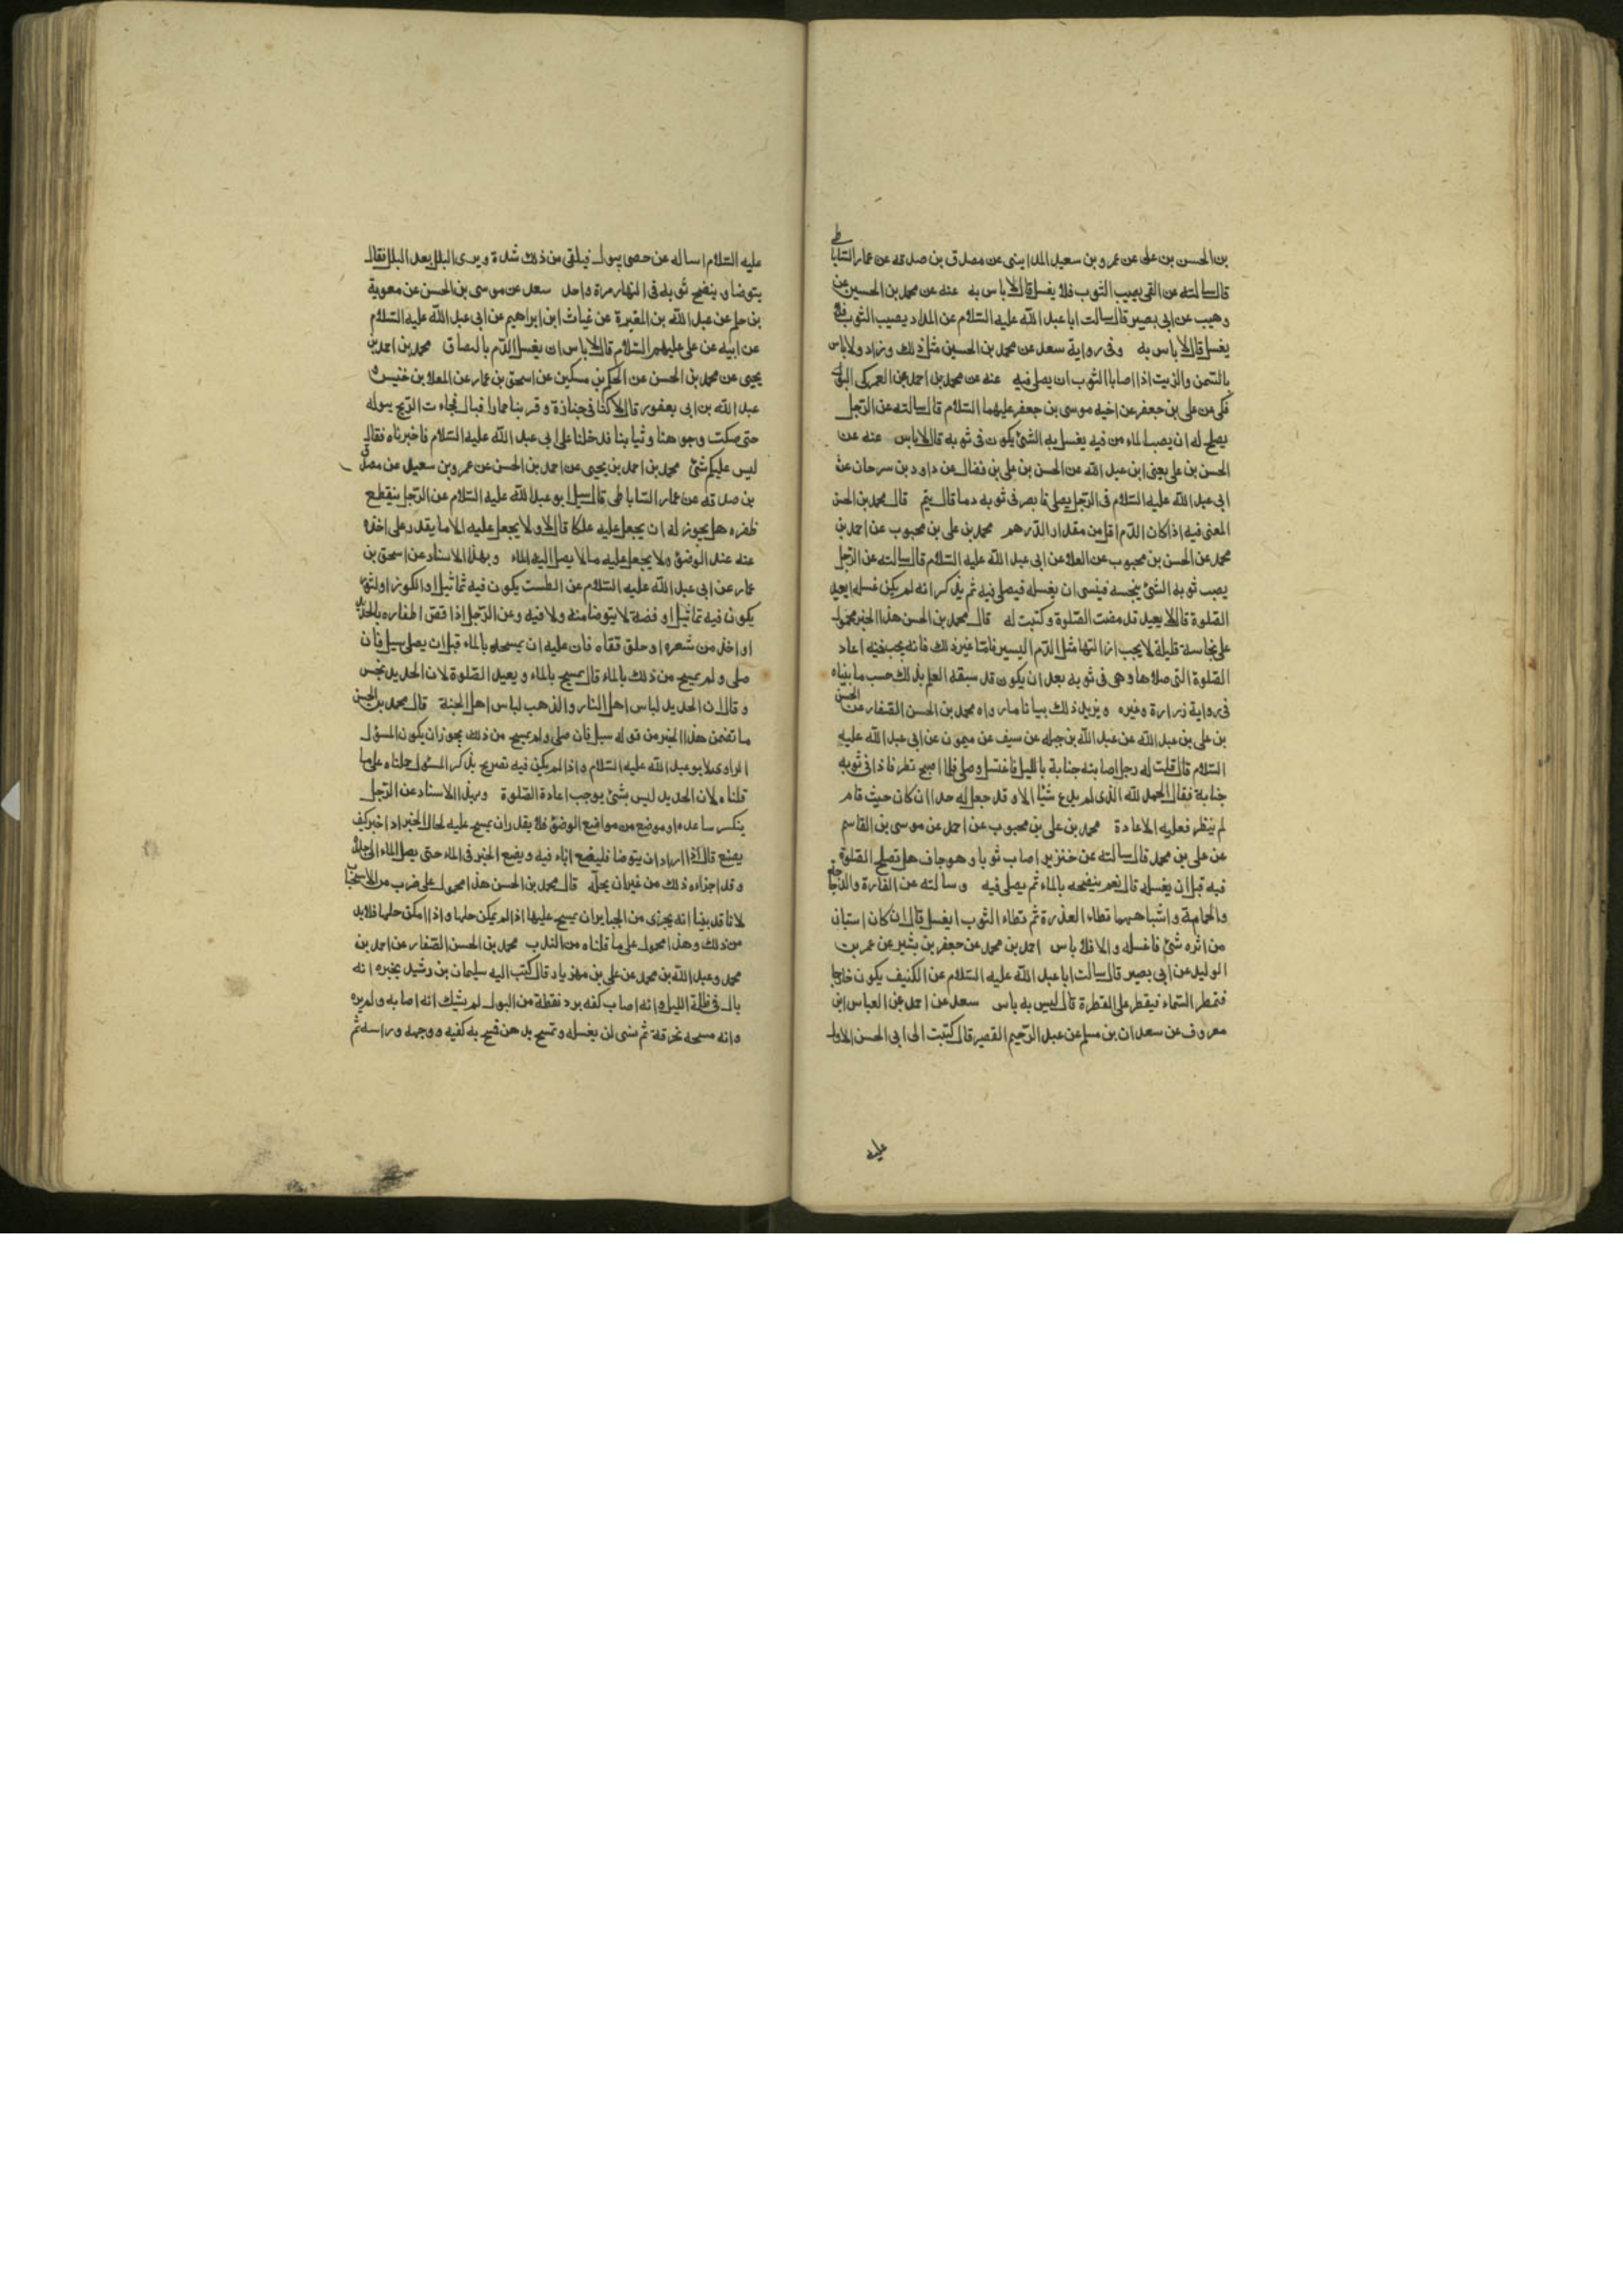 بن الحسن بن على عن عمرو بن سعيد المداينى عن مصدق بن صدقه عن عمار الساباطى
قال سالته عن القى يصيب الثوب فلا يغسل قال لا باس به عنه عن محمد بن الحسين عن
وهيب عن ابى بصير قال سالت ابا عبد الله عليه السلام عن المداد يصيب الثوب فلا
يغسل قال لا باس به وفى رواية سعد عن محمد بن الحسين مثل ذلك وزاد ولا باس
بالسمن والزيت اذا اصابا الثوب ان يصلى فيه عنه عن محمد بن احمد عن العمركى البو
فكى عن على بن جعفر عن اخيه موسى بن جعفر عليهما السلام قال سالته عن الرجل
يصلح له ان يصب الماء من فيه يغسل به الشئ يكون فى ثوبه قال لا باس عنه عن
الحسن بن على يعنى ابن عبد الله عن الحسن بن على بن فضال عن داود بن سرحان عن
ابى عبد الله عليه السلام فى الرجل يصلى فابصر فى ثوبه دما قال يتم قال محمد بن الحسن
المعنى فيه اذا كان الدم اقل من مقدار الدرهم محمد بن على بن محبوب عن احمد بن
محمد عن الحسن بن محبوب عن العلا عن ابى عبد الله عليه السلام قال سالته عن الرجل
يصيب ثوبه الشئ ينجسه فينسى ان يغسله فيصلى فيه ثم يذكر انه لم يكن غسله ايعيد
الصلوة قال لا يعيد قد مضت الصلوة وكتبت له قال محمد بن الحسن هذا الخبر محمول
على نجاسة قليلة لا يجب ازالتها مثل الدم اليسير فاما غير ذلك فانه يجب منه اعاد
الصلوة التى صلاها وهى فى ثوبه بعد ان يكون قد سبقه العلم بذلك حسب ما بيناه
فى رواية زرارة وغيره ويزيد ذلك بيانا ما رواه محمد بن الحسن الصفار عن الحسن
بن على بن عبد الله عن عبد الله بن جبله عن سيف عن ميمون عن ابى عبد الله عليه
السلام قال قلت له رجل اصابته جنابة بالليل فاغتسل وصلى فلما اصبح نظر فاذا فى ثوبه
جنابة فقال الحمد لله الذى لم يدع شيئا الا وقد جعل له حدا ان كان حيث قام
لم ينظر فعليه الاعادة محمد بن على بن محبوب عن احمد عن موسى بن القاسم
عن على بن محمد قال سالته عن خنزير اصاب ثوبا وهو جاف هل تصلح الصلوة
فيه قبل ان يغسله قال نعم ينضحه بالماء ثم يصلى فيه وسالته عن الفارة والدجاجة
والحمامة واشباههما تطاء العذرة ثم تطاء الثوب ايغسل قال ان كان استبان
من اثره شئ فاغسله والا فلا باس احمد بن محمد عن جعفر بن بشير عن عمر بن
الوليد عن ابى بصير قال سالت ابا عبد الله عليه السلام عن الكنيف يكون خارجا
فتمطر السماء فيقطر على القطرة قال ليس به باس سعد عن احمد عن العباس ابن
معروف عن سعدان بن مسلم عن عبد الرحيم القصير قال كتبت الى ابى الحسن الاول
عليه
عليه السلام اساله عن خصى يبول فيلقى من ذلك شدة ويرى البلل بعد البلل فقال
يتوضا وينضح ثوبه فى النهار مرة واحد سعد عن موسى بن الحسن عن معوية
بن حكيم عن عبد الله بن المغيرة عن غياث ابن ابراهيم عن ابى عبد الله عليه السلام
عن ابيه عن على عليهم السلام قال لا باس ان يغسل الدم بالبصاق محمد بن احمد بن
يحيى عن محمد بن الحسن عن الحكم بن مسكين عن اسحق بن عمار عن المعلا بن خنيس و
عبد الله بن ابى يعفور قالا كنا فى جنازة وقربنا حمار فبال فجاءت الريح ببوله
حتى صكت وجوهنا وثيابنا فدخلنا على ابى عبد الله عليه السلام فاخبرناه فقال
ليس عليكم شئ محمد بن احمد بن يحيى عن احمد بن الحسن عن عمرو بن سعيد عن مصدق
بن صدقه عن عمار الساباطى قال سيل ابو عبد الله عليه السلام عن الرجل ينقطع
ظفره هل يجوز له ان يجعل عليه علكا قال لا ولا يجعل عليه الا ما يقدر على اخذه
عنه عند الوضوء ولا يجعل عليه ما لا يصل اليه الماء وبهذا الاسناد عن اسحق بن
عمار عن ابى عبد الله عليه السلام عن الطست يكون فيه تماثيل او الكوز او التور
يكون فيه تماثيل او فضة لا يتوضا منه ولا فيه وعن الرجل اذا قص اظفاره بالحديد
او اخذ من شعره او حلق قفاه فان عليه ان يمسحه بالماء قبل ان يصلى سيل فان
صلى ولم يمسح من ذلك بالماء قال يمسح بالماء ويعيد الصلوة لان الحديد نجس
وقال ان الحديد لباس اهل النار والذهب لباس اهل الجنة قال محمد بن الحسن
ما تضمن هذا الخبر من قوله سيل فان صلى ولم يمسح من ذلك يجوز ان يكون المسؤل
الراوى لابو عبد الله عليه السلام واذا لم يكن فيه تصريح بذكر المسئول حملناه على ما
قلناه لان الحديد ليس بشئ يوجب اعادة الصلوة وبهذا الاسناد عن الرجل
ينكسر ساعده او موضع من مواضع الوضوء فلا يقدر ان يمسح عليه لحال الجبر اذا جبر كيف
يصنع قال اذا اراد ان يتوضا فليضع اناء فيه ويضع الجبر فى الماء حتى يصل الماء الى جلده
وقد اجزاه ذلك من غير ان يحله قال محمد بن الحسن هذا محمول على ضرب من الاستحباب
لانا قد بينا انه يجزى من الجباير ان يمسح عليها اذا لم يمكن حلها واذا امكن حلها فلابد
من ذلك وهذا محمول على ما قلناه من الندب محمد بن الحسن الصفار عن احمد بن
محمد وعبد الله بن محمد عن على بن مهزيار قال كتب اليه سليمان بن رشيد يخبره انه
بال فى ظلمة الليل وانه اصاب كفه برد نقطة من البول لم يشك انه اصابه ولم يره
وانه مسحه بخرقة ثم نسى ان يغسله وتمسح بدهن فمسح به كفيه ووجهه وراسه ثم